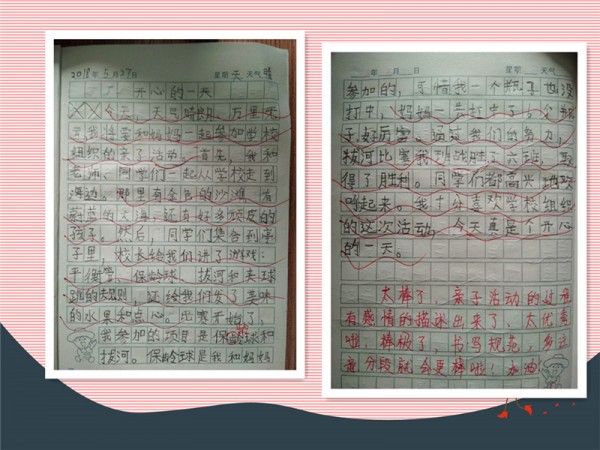 2018年5月27日 星期天 天气晴
开心的一天
今天,天气晴朗,万里无
云我爸爸和妈妈一起参加学校
组织的亲子活动。首先,我和
老师、同学们一起从学校走到
海边。那里有金色的沙滩,有
蔚蓝的大海,还有好多顽皮的
孩子。然后,同学们集合到亭
子里,校长给我们讲了游戏:
平衡 保龄球、拔河和夹球
跑的规则,还给我们发了美味
的水果和点心。比赛开始了,
我参加的项目是保龄球和
拔河。保龄球是我和妈妈
年 月 日 星期 天气
参加的,可惜我一个瓶子也没
打中,妈妈一共打中了 个
子,好厉害。经过我们的努力,
拔河比赛我班战胜了六班,取
得了胜利。同学们都高兴地欢
呼起来。我十分喜欢学校组织
的这次活动。今天真是个开心
的一天。
太棒了,亲子活动的过程
有感情的描述出来了,太优美
啦,棒极了,书写规范,
意分段就会更棒啦!加油!